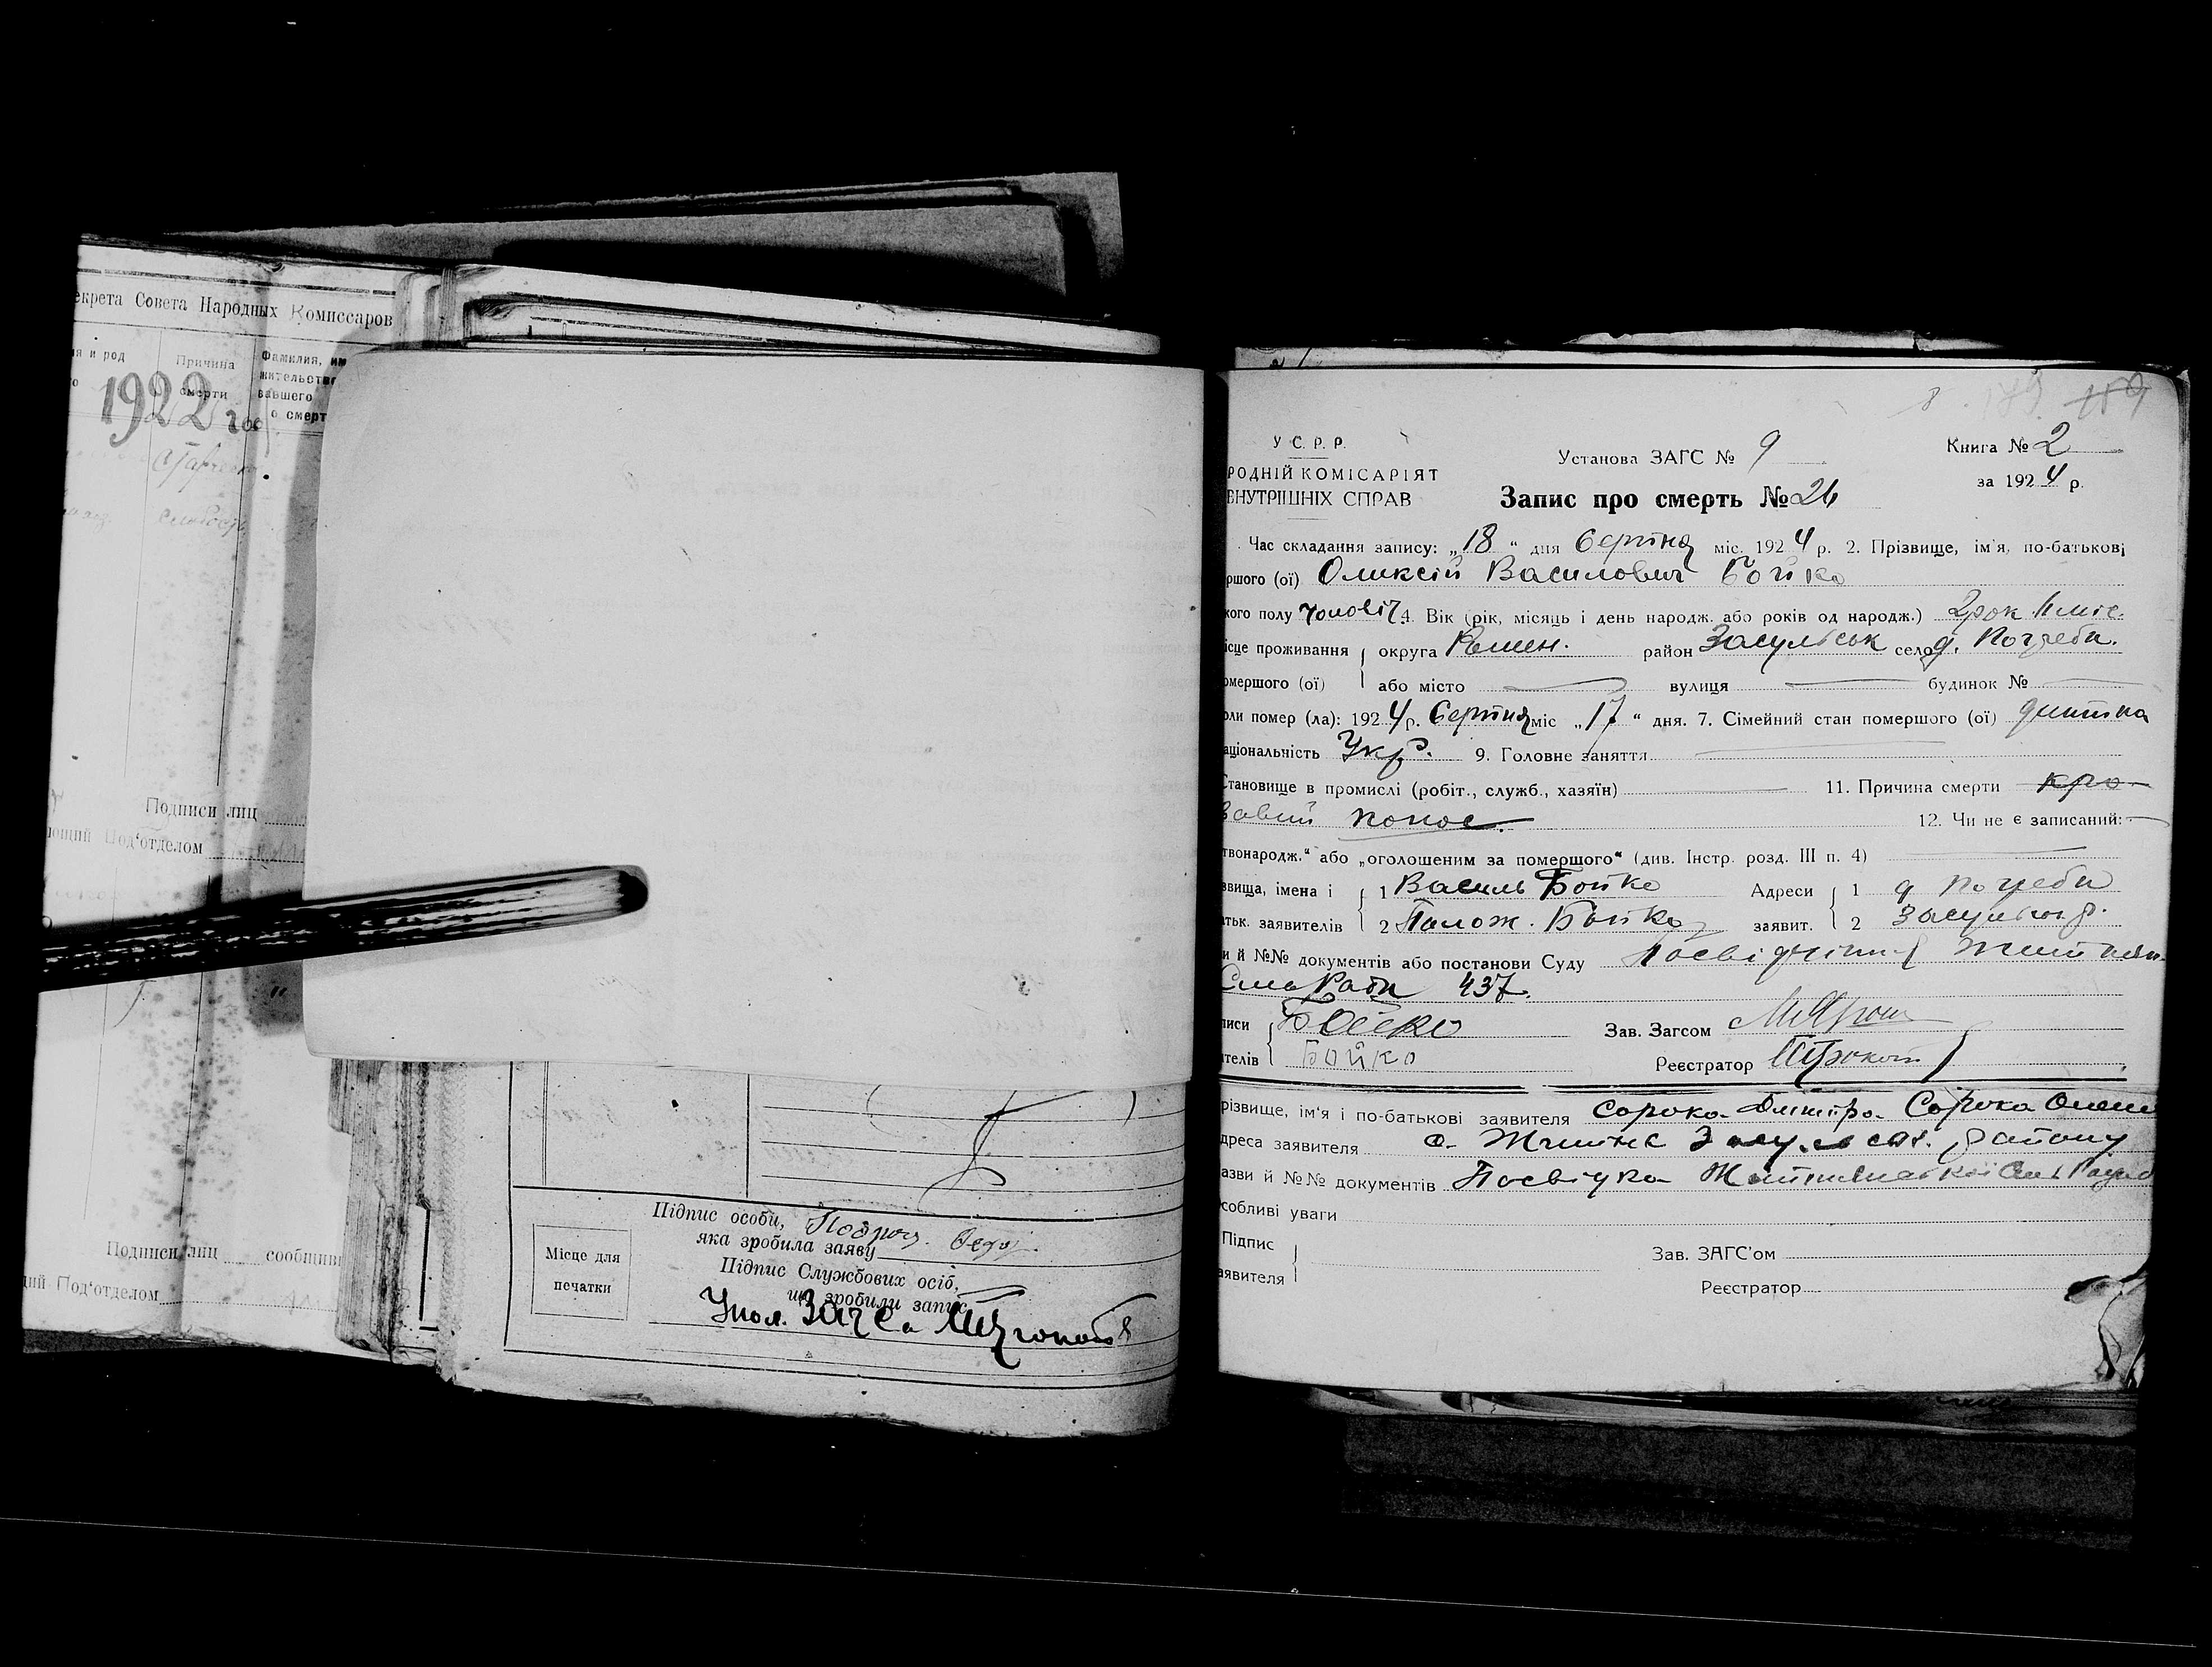 екрета Совета Народных Комиссаров
я и род
Причина
смерти
Фамилия, им
жительство
вавшего
о смерт
1922 год
Подписи лиц
ющий Под'отделом
Подписи лиц сообщивш
ций Под'отделом
Місце для
печатки
Підпис особи,
яка зробила заяву
Підпис Службових осіб,
що зробили запис
Упол. Загса
У С. Р. Р.
РОДНІЙ КОМІСАРІЯТ
ВНУТРІШНІХ СПРАВ
Установа ЗАГС № 9
Книга № 2
за 1924 р.
Запис про смерть № 26
Час складання запису: „18“ дня Серпня міс. 1924 р. 2. Прізвище, ім'я, по-батькові
ршого (ої) Олексій Василович Бойко
кого полу чоловіч. 4. Вік (рік, місяць і день народж. або років од народж.) 2 рок 11 міс.
ісце проживання округа Ромен. район Засульськ село д. Погреби.
омершого (ої) або місто вулиця будинок №
оли помер (ла): 1924 р. Серпня міс „17“ дня. 7. Сімейний стан помершого (ої) дитина
аціональність Укр. 9. Головне заняття
Становище в промислі (робіт., служб., хазяїн) 11. Причина смерти кро-
вавий понос. 12. Чи не є записаний:
твонародж.“ або „оголошеним за помершого“ (див. Інстр. розд. III п. 4)
звища, імена і 1 Василь Бойко Адреси 1 д Погреби
атьк. заявителів 2 Палож. Бойко заявит. 2
и й №№ документів або постанови Суду
Сель Ради 437.
писи Бойко Зав. Загсом
ителів Бойко Реєстратор
різвище, ім'я і по-батькові заявителя Сорока Дмитро Сорока
дреса заявителя району
азви й №№ документів Посвідка
собливі уваги
Підпис
аявителя
Зав. ЗАГС'ом
Реєстратор